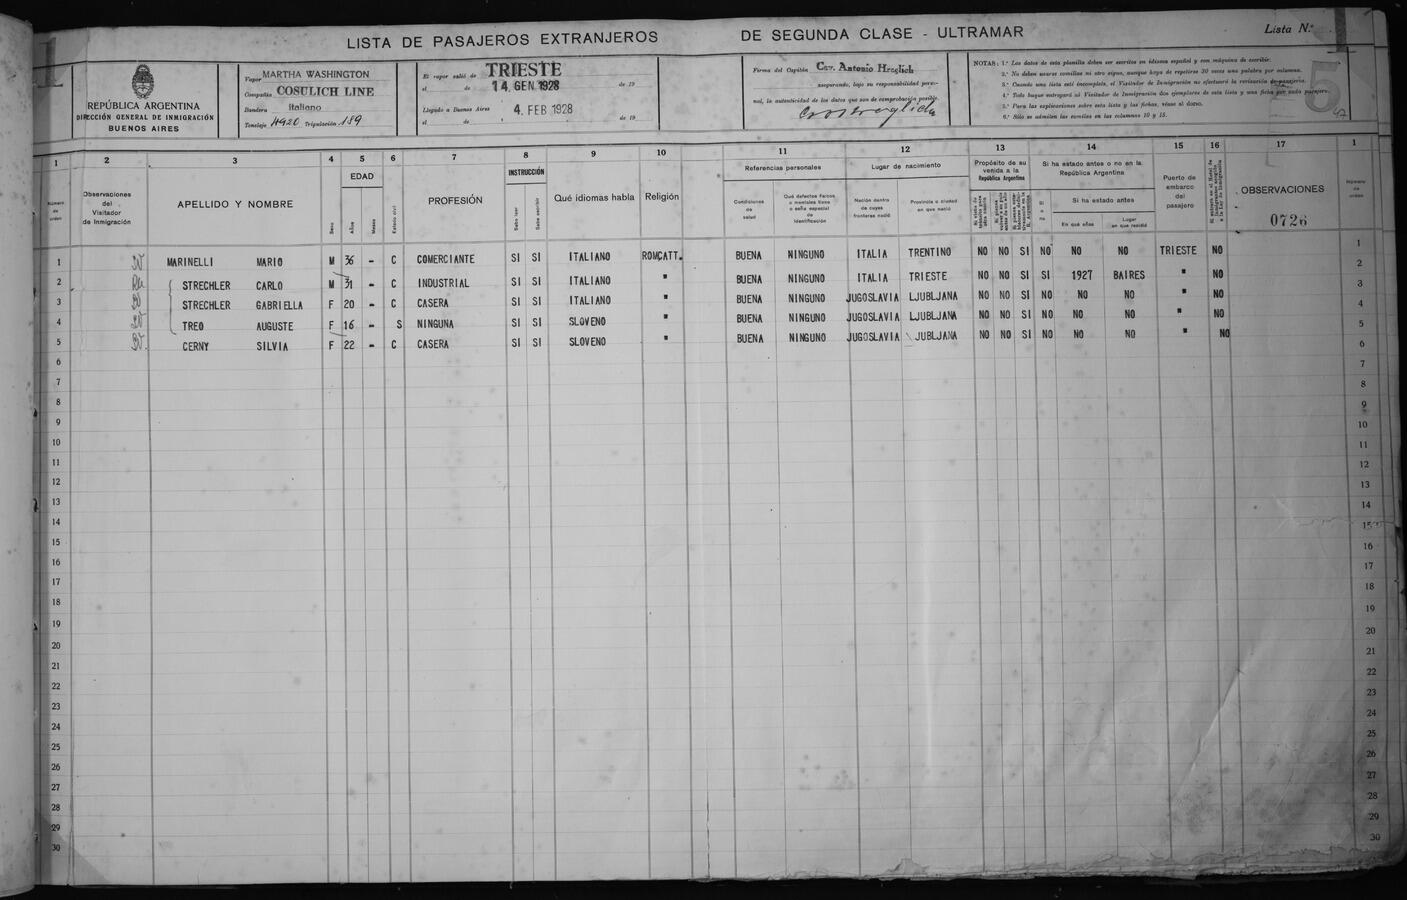 LISTA DE PASAJEROS EXTRANJEROS DE SEGUNDA CLASE - ULTRAMAR
Lista N.º
REPÚBLICA ARGENTINA
DIRECCIÓN GENERAL DE INMIGRACIÓN
BUENOS AIRES
Vapor MARTHA WASHINGTON
Compañía COSULICH LINE
Bandera italiano
Tonelaje 4920 Tripulación 189
El vapor salió de TRIESTE
el 14 GEN. 1928 de 19
Llegado a Buenos Aires
el de 4 FEB 1928 de 19
Firma del Capitán Cav. Antonio Hreglich
asegurando, bajo su responsabilidad perso-
nal, la autenticidad de los datos que son de comprobación posible.
NOTAS: 1.ª Los datos de esta planilla deben ser escritos en idioma español y con máquina de escribir.
2.ª No deben usarse comillas ni otro signo, aunque haya de repetirse 30 veces una palabra por columna.
3.ª Cuando una lista esté incompleta, el Visitador de Inmigración no efectuará la revisación de pasajeros.
4.ª Todo buque entregará al Visitador de Inmigración dos ejemplares de esta lista y una ficha por cada pasajero.
5.ª Para las explicaciones sobre esta lista y las fichas, véase al dorso.
6.ª Sólo se admiten las comillas en las columnas 10 y 15.
5
1 2 3 4 5 6 7 8 9 10 11 12 13 14 15 16 17 1
Número de orden
Observaciones del Visitador de Inmigración
APELLIDO Y NOMBRE
Sexo
EDAD
Años
Meses
Estado civil
PROFESIÓN
INSTRUCCIÓN
Sabe leer
Sabe escribir
Qué idiomas habla
Religión
Referencias personales
Condiciones de salud
Qué defectos físicos o mentales tiene o seña especial de identificación
Lugar de nacimiento
Nación dentro de cuyas fronteras nació
Provincia o ciudad en que nació
Propósito de su venida a la República Argentina
Si ha estado antes o no en la República Argentina
Si ha estado antes
En qué años
Lugar en que residió
Puerto de embarco del pasajero
OBSERVACIONES
0726
Número de orden
1 MARINELLI MARIO M 36 - C COMERCIANTE SI SI ITALIANO ROM,CATT. BUENA NINGUNO ITALIA TRENTINO NO NO SI NO NO NO TRIESTE NO 1
2 STRECHLER CARLO M 31 - C INDUSTRIAL SI SI ITALIANO " BUENA NINGUNO ITALIA TRIESTE NO NO SI SI 1927 BAIRES " NO 2
3 STRECHLER GABRIELLA F 20 - C CASERA SI SI ITALIANO " BUENA NINGUNO JUGOSLAVIA LJUBLJANA NO NO SI NO NO NO " NO 3
4 TREO AUGUSTE F 16 - S NINGUNA SI SI SLOVENO " BUENA NINGUNO JUGOSLAVIA LJUBLJANA NO NO SI NO NO NO " NO 4
5 CERNY SILVIA F 22 - C CASERA SI SI SLOVENO " BUENA NINGUNO JUGOSLAVIA LJUBLJANA NO NO SI NO NO NO " NO 5
6 6
7 7
8 8
9 9
10 10
11 11
12 12
13 13
14 14
15 15
16 16
17 17
18 18
19 19
20 20
21 21
22 22
23 23
24 24
25 25
26 26
27 27
28 28
29 29
30 30